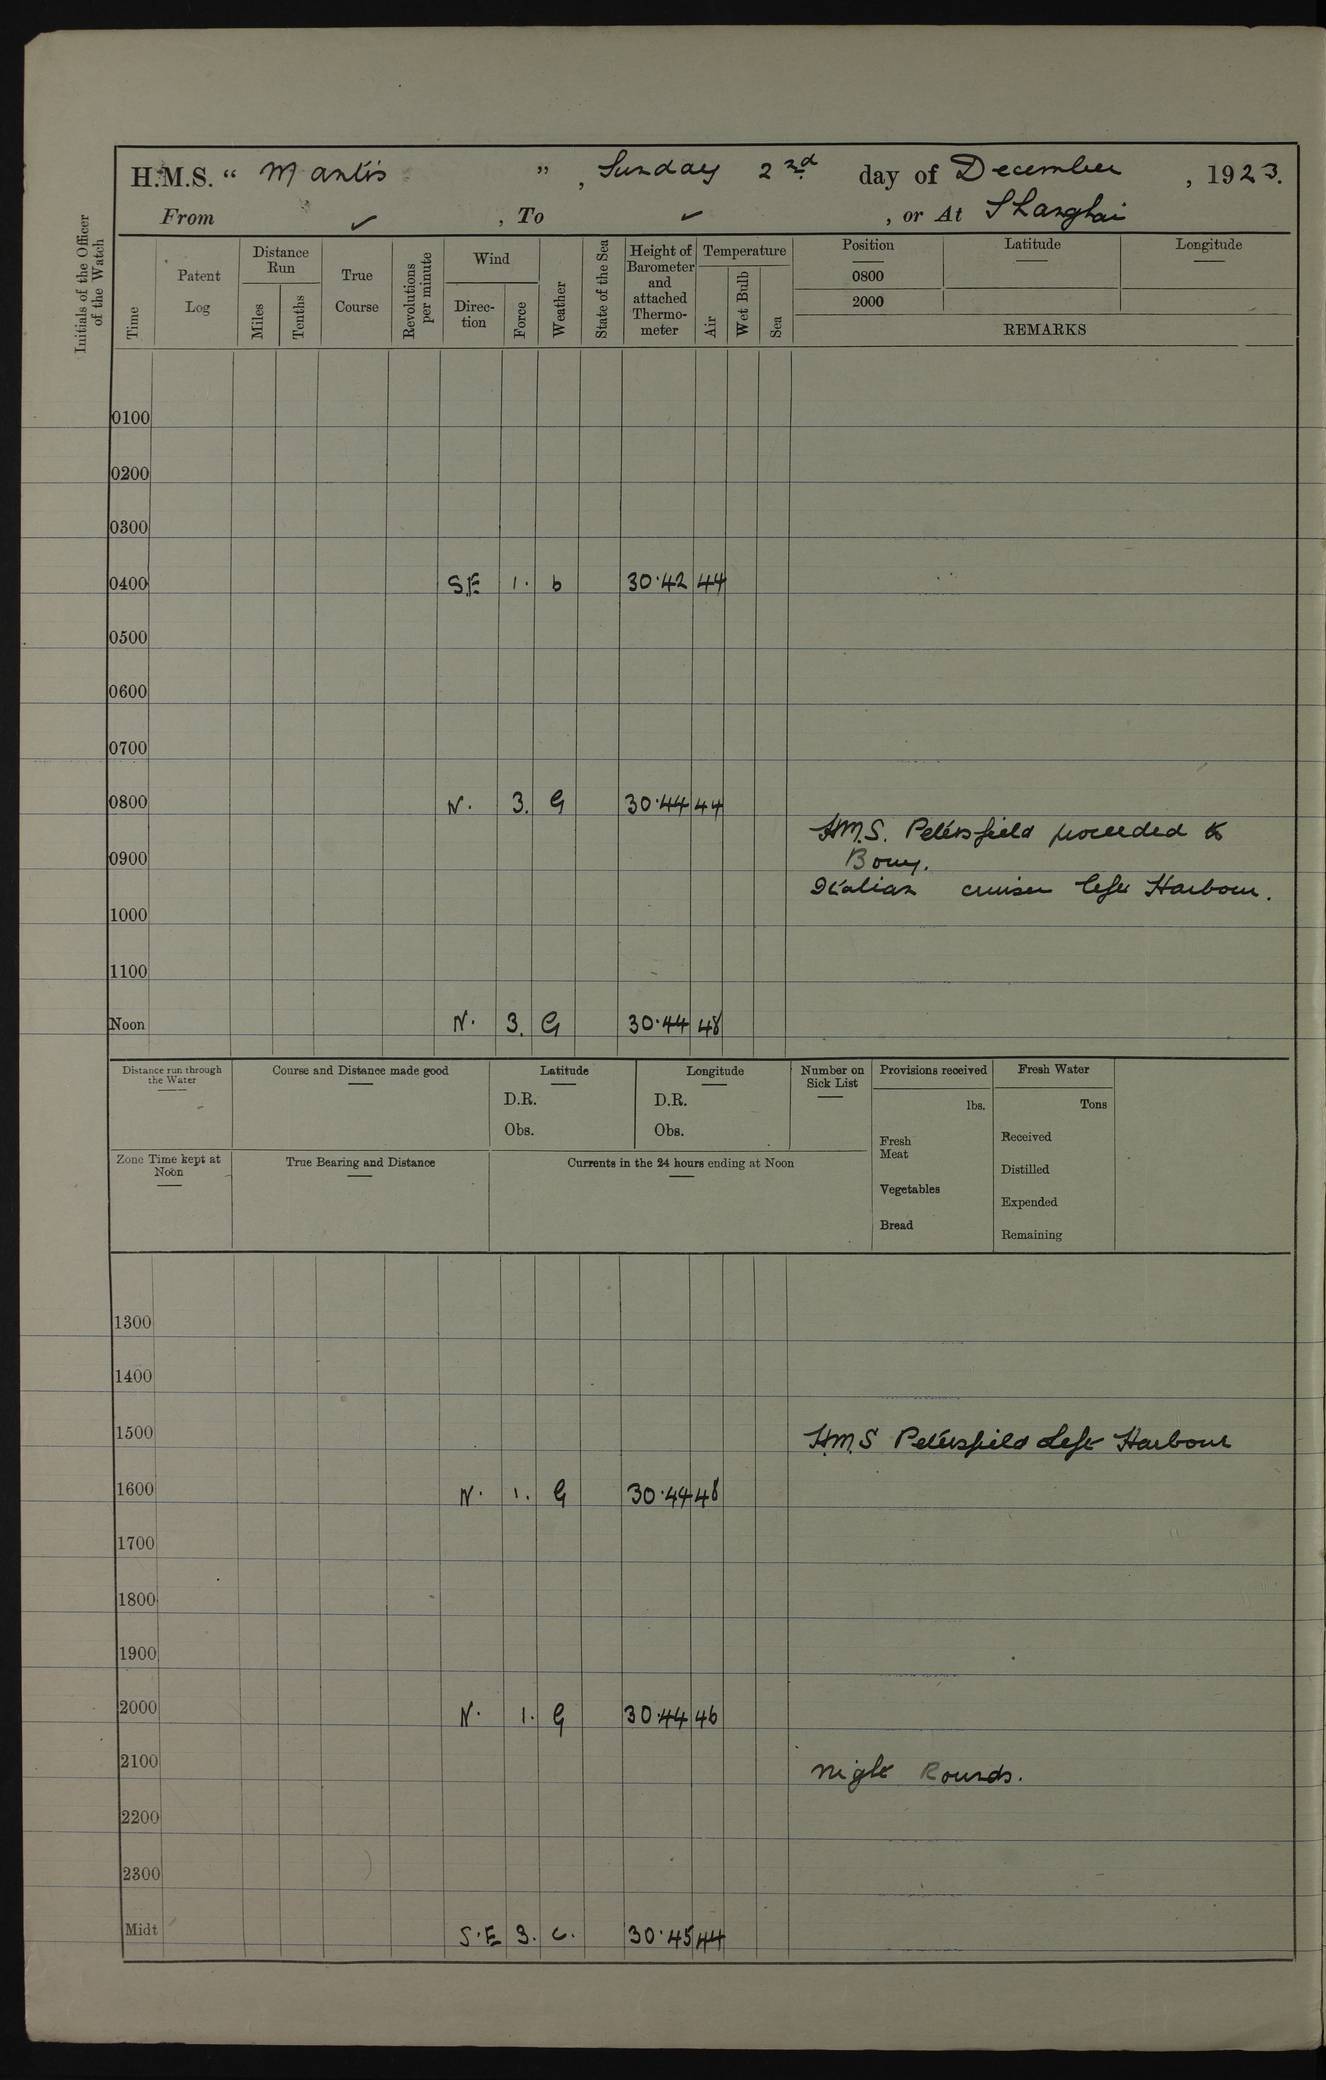 H.M.S. “ Mantis ” , Sunday 2nd day of December , 1923.
From ✓ , To ✓ , or At Shanghai
Initials of the Officer of the Watch
Time
Patent Log
Distance Run
Miles
Tenths
True Course
Revolutions per minute
Wind
Direc-tion
Force
Weather
State of the Sea
Height of Barometer and attached Thermo-meter
Temperature
Air
Wet Bulb
Sea
Position Latitude Longitude
0800
2000
REMARKS
0100
0200
0300
0400 S.E 1. b 30.42 44
0500
0600
0700
0800 N. 3. G 30.44 44
H.M.S. Petersfield proceeded to
0900 Bouy.
Italian cruiser left Harbour.
1000
1100
Noon N. 3. G 30.44 48
Distance run through the Water
Course and Distance made good
Latitude
D.R.
Obs.
Longitude
D.R.
Obs.
Number on Sick List
Provisions received
lbs.
Fresh Meat
Vegetables
Bread
Fresh Water
Tons
Received
Distilled
Expended
Remaining
Zone Time kept at Noon
True Bearing and Distance
Currents in the 24 hours ending at Noon
1300
1400
1500 H.M.S Petersfield Left Harbour
1600 N. 1. G 30.44 48
1700
1800
1900
2000 N. 1. G 30.44 46
2100 Night Rounds.
2200
2300
Midt S.E 3. c. 30.45 44